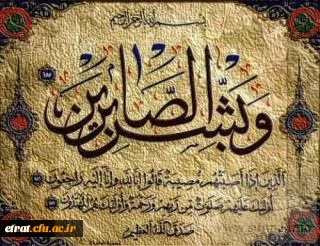 بسم الله الرحمن الرحیم
وَبَشِّرِ الصَّابِرِينَ ١٥٥
الَّذِينَ إِذَا أَصَابَتْهُمْ مُصِيبَةٌ قَالُوا إِنَّا لِلَّهِ وَإِنَّا إِلَيْهِ رَاجِعُونَ ١٥٦
أُولَئِكَ عَلَيْهِمْ صَلَوَاتٌ مِنْ رَبِّهِمْ وَرَحْمَةٌ وَأُولَئِكَ هُمُ الْمُهْتَدُونَ
صدق الله العظيم
etrat.cfu.ac.ir